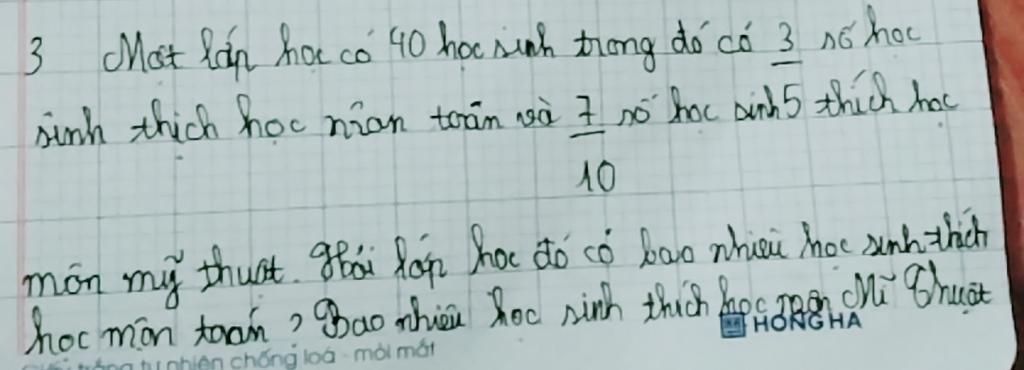 3 Một lớp học có 40 học sinh trong đó có 3 số học
sinh thích học môn toán và 7 số học sinh 5 thích học
10
môn mỹ thuật. Hỏi lớp học đó có bao nhiêu học sinh thích
học môn toán, Bao nhiêu học sinh thích học môn Mĩ Thuật
HONG HA
trắng tự nhiên chống loá - mỏi mắt